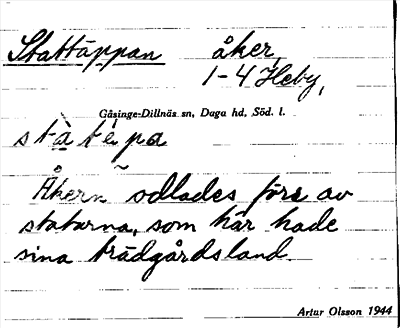 Stattäppan åker,
1-4 Heby,
Gåsinge-Dillnäs sn, Daga hd, Söd. l.
stàtépa
Åkern odlades förr av
statarna, som här hade
sina trädgårdsland
Artur Olsson 1944